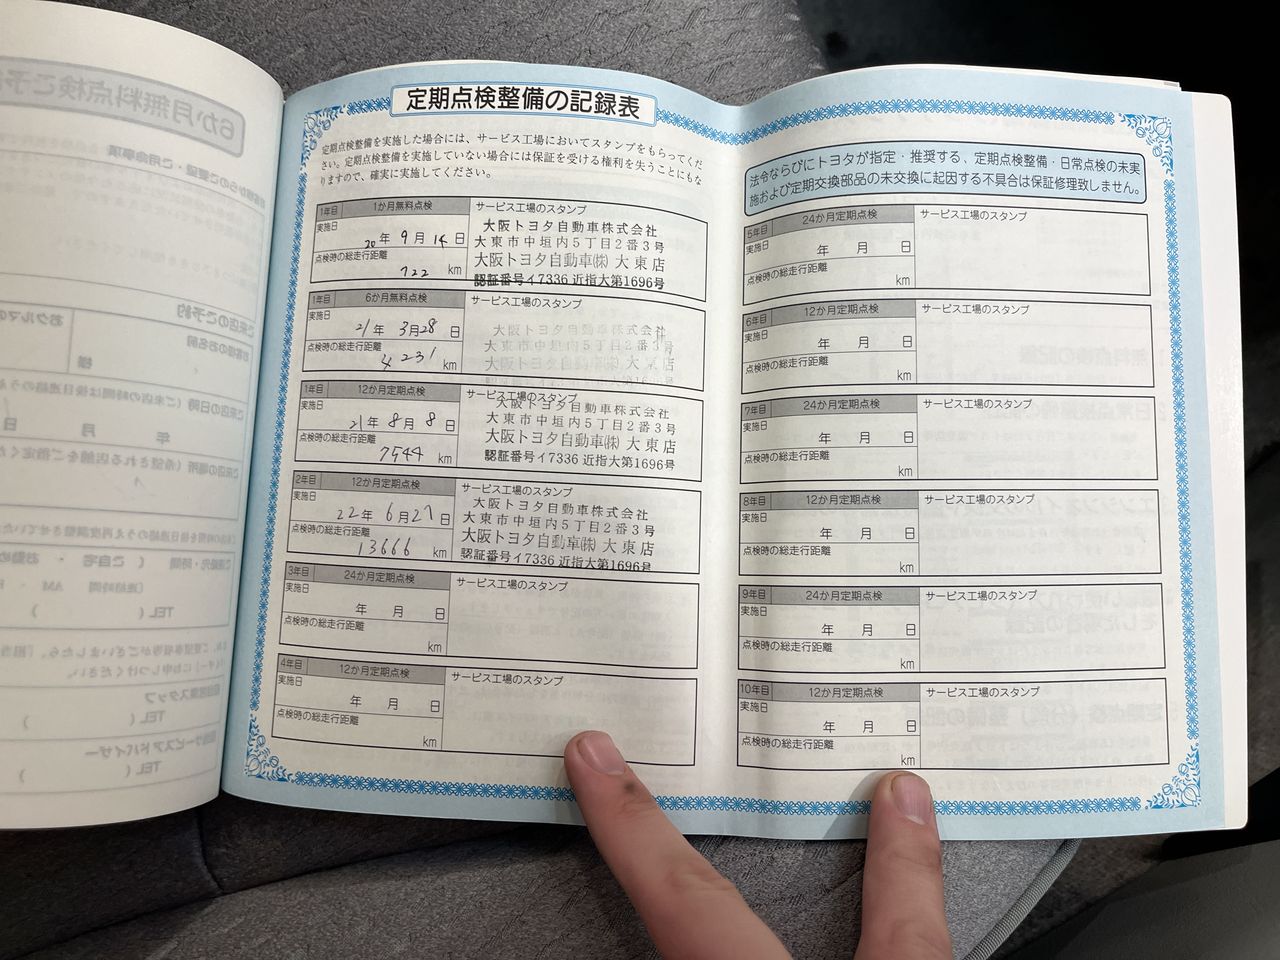 定期点検整備の記録表
定期点検整備を実施した場合には、サービス工場においてスタンプをもらってくだ
さい。定期点検整備を実施していない場合には保証を受ける権利を失うことにもな
りますので、確実に実施してください。
1年目 1か月無料点検 サービス工場のスタンプ
実施日 20年 9月 14日
点検時の総走行距離
722 km
大阪トヨタ自動車株式会社
大東市中垣内5丁目2番3号
大阪トヨタ自動車㈱ 大東店
認証番号イ7336 近指大第1696号
1年目 6か月無料点検 サービス工場のスタンプ
実施日 21年 3月28日
点検時の総走行距離
4231 km
大阪トヨタ自動車株式会社
大東市中垣内5丁目2番3号
大阪トヨタ自動車㈱ 大東店
1年目 12か月定期点検 サービス工場のスタンプ
実施日 21年 8月 8日
点検時の総走行距離
7544 km
大阪トヨタ自動車株式会社
大東市中垣内5丁目2番3号
大阪トヨタ自動車㈱ 大東店
認証番号イ7336 近指大第1696号
2年目 12か月定期点検 サービス工場のスタンプ
実施日 22年 6月27日
点検時の総走行距離
13666 km
大阪トヨタ自動車株式会社
大東市中垣内5丁目2番3号
大阪トヨタ自動車㈱ 大東店
認証番号イ7336 近指大第1696号
3年目 24か月定期点検 サービス工場のスタンプ
実施日 年 月 日
点検時の総走行距離
km
4年目 12か月定期点検 サービス工場のスタンプ
実施日 年 月 日
点検時の総走行距離
km
法令ならびにトヨタが指定・推奨する、定期点検整備・日常点検の未実
施および定期交換部品の未交換に起因する不具合は保証修理致しません。
5年目 24か月定期点検 サービス工場のスタンプ
実施日 年 月 日
点検時の総走行距離
km
6年目 12か月定期点検 サービス工場のスタンプ
実施日 年 月 日
点検時の総走行距離
km
7年目 24か月定期点検 サービス工場のスタンプ
実施日 年 月 日
点検時の総走行距離
km
8年目 12か月定期点検 サービス工場のスタンプ
実施日 年 月 日
点検時の総走行距離
km
9年目 24か月定期点検 サービス工場のスタンプ
実施日 年 月 日
点検時の総走行距離
km
10年目 12か月定期点検 サービス工場のスタンプ
実施日 年 月 日
点検時の総走行距離
km